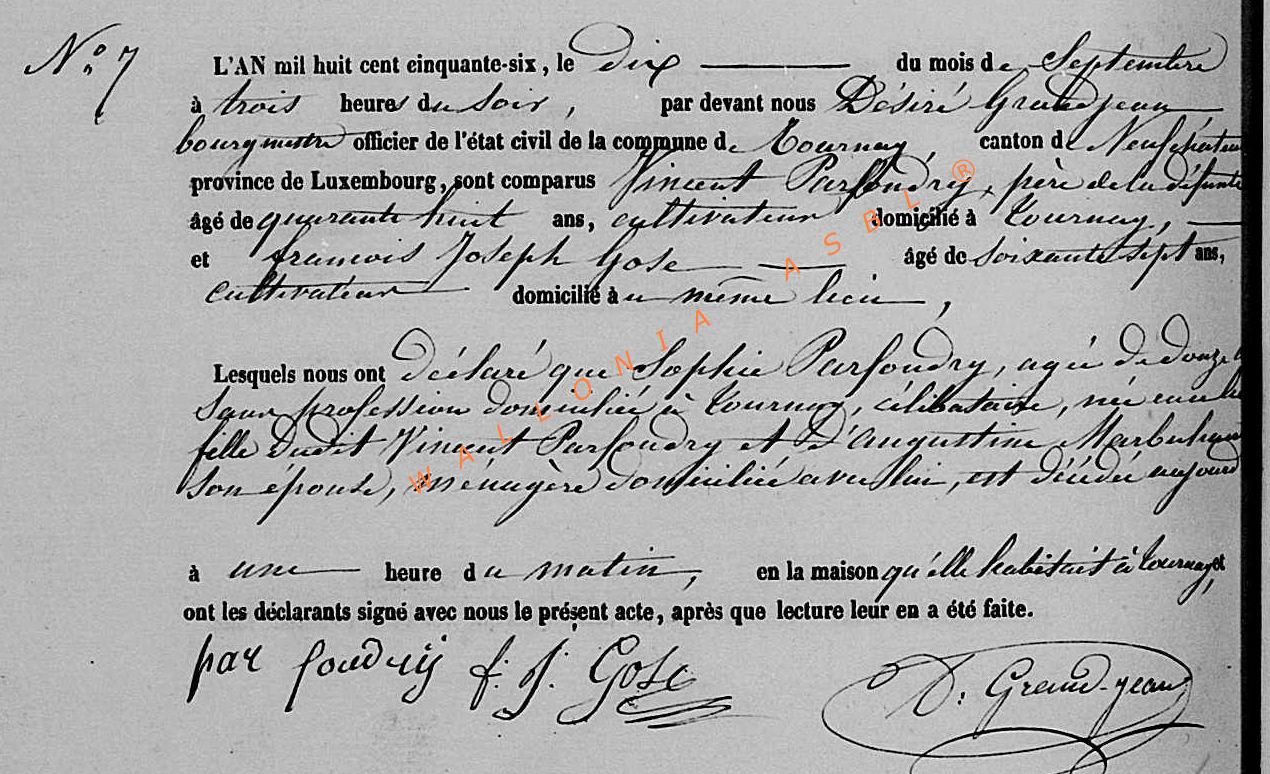 N° 7
L'AN mil huit cent cinquante-six, le dix du mois de Septembre
à trois heures du soir, par devant nous Désiré Grandjean
bourgmestre officier de l'état civil de la commune de Tournay, canton de Neufchateau
province de Luxembourg, sont comparus Vincent Parfondry, père de la défunte
âgé de quarante huit ans, cultivateur domicilié à Tournay,
et francois Joseph Gose âgé de soixante sept ans,
cultivateur domicilié au même lieu,
Lesquels nous ont déclaré que Sophie Parfondry, agée de douze
sans profession domiciliée à Tournay, célibataire, née
fille dudit Vincent Parfondry et d'Augustine
son épouse, ménagère domiciliée avec lui, est décédée aujourd
à une heure du matin, en la maison qu'elle habitait à Tournay, et
ont les déclarants signé avec nous le présent acte, après que lecture leur en a été faite.
parfondry f. J. Gose D. Grand-jean
WALLONIA ASBL ®